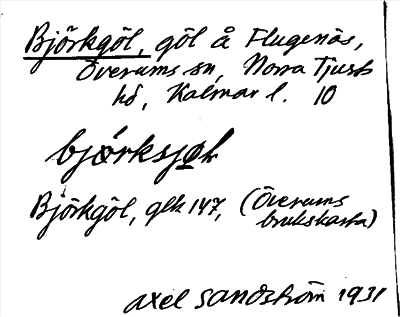 Björkgöl, göl å Flugenäs,
Överums sn, Norra Tjusts
hd, Kalmar l. 10
björksjöh
Björkgöl, glk 147, (Överums
brukskarta)
Axel Sandström 1931